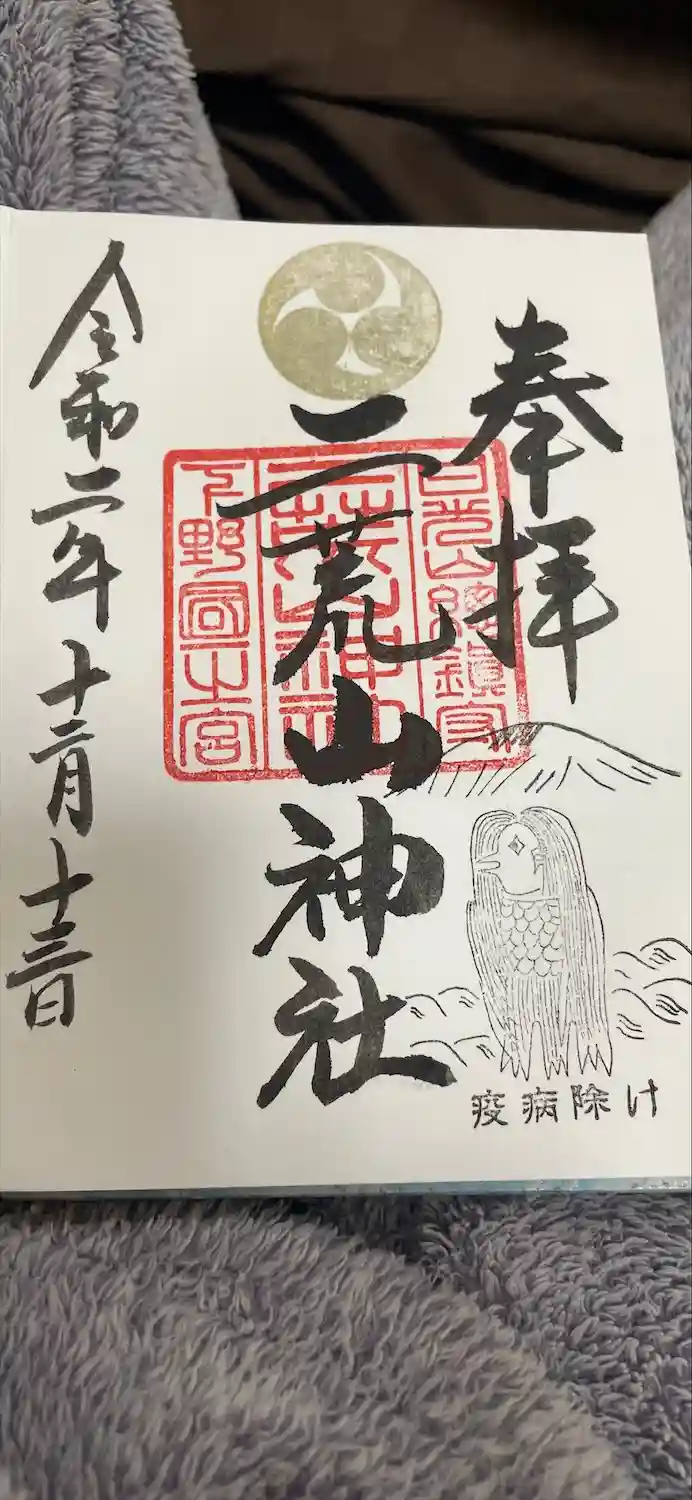 奉拝
日光山總鎮守
二荒山神社
下野國一之宮
二荒山神社
令和二年十二月十三日
疫病除け